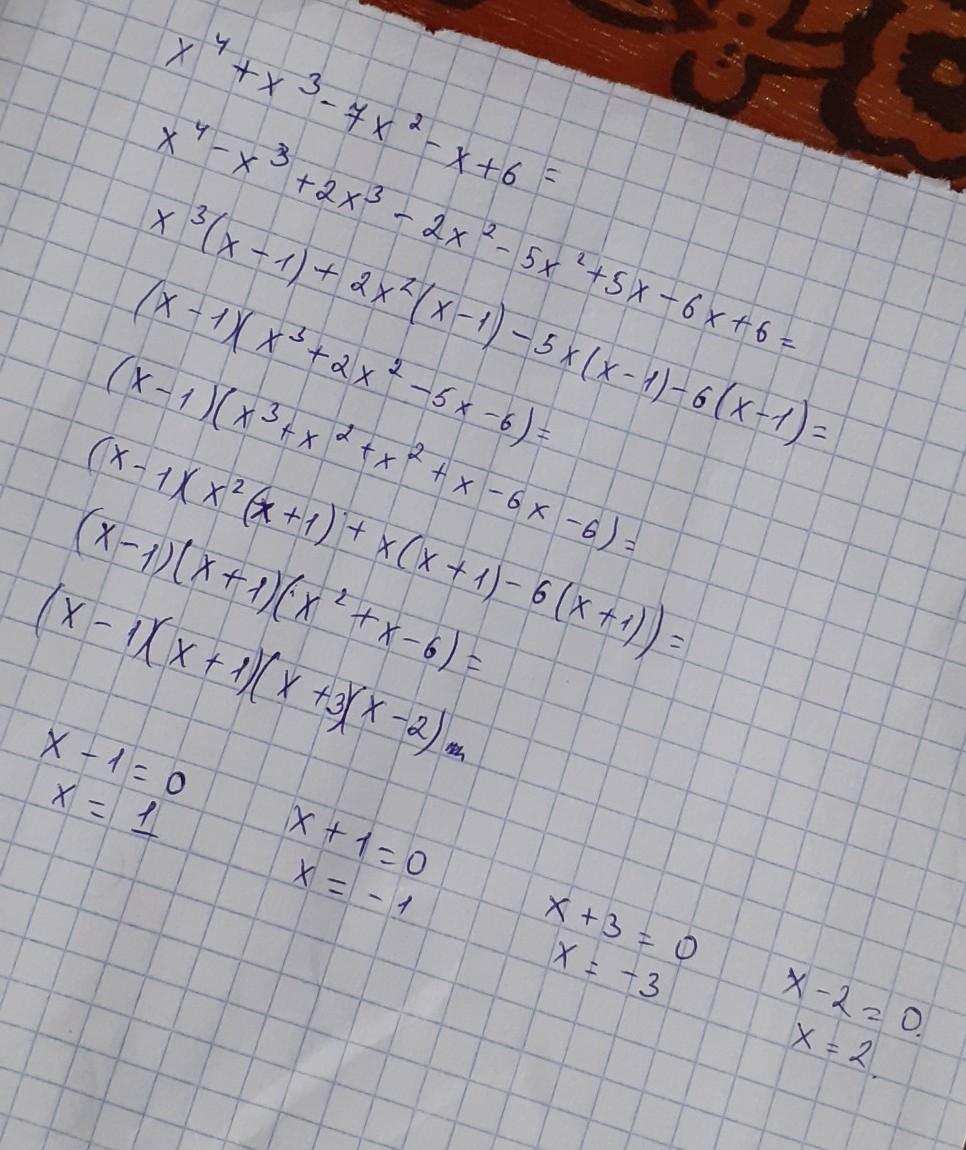 x⁴+x³-7x²-x+6=
x⁴-x³+2x³-2x²-5x²+5x-6x+6=
x³(x-1)+2x²(x-1)-5x(x-1)-6(x-1)=
(x-1)(x³+2x²-5x-6)=
(x-1)(x³+x²+x²+x-6x-6)=
(x-1)(x²(x+1)+x(x+1)-6(x+1))=
(x-1)(x+1)(x²+x-6)=
(x-1)(x+1)(x+3)(x-2)
x-1=0
x=1
x+1=0
x=-1
x+3=0
x=-3
x-2=0.
x=2.